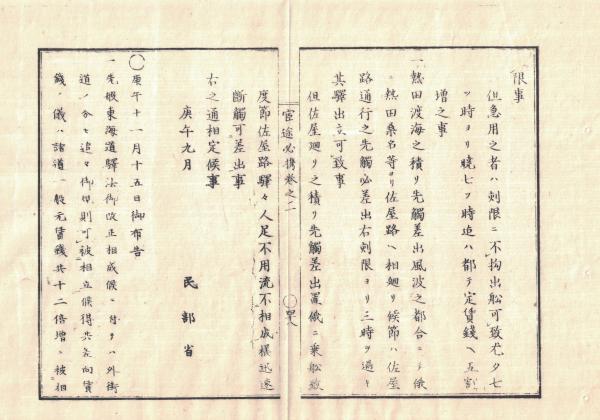 限事
但急用之者ハ刻限ニ不拘出舩可致尤夕七
ツ時ヨリ暁七ツ時迄ハ都テ定賃錢ヘ五割
増之事
一熱田渡海之積リ先觸差出風波之都合ニテ俄
ニ熱田桑名等ヨリ佐屋路ヘ相廻リ候節ハ佐屋
路通行之先觸必差出右刻限ヨリ三時ヲ過キ
其驛出立可致事
但佐屋廻リ之積リ先觸差出置俄ニ乗舩致
宦途必携巻之二
〇四十八
度節佐屋路驛々人足不用流不相成様迅速
断觸可差出事
右之通相定候事
庚午九月
民部省
〇庚午十一月十五日御布告
一先般東海道驛法御改正相成候ニ付テハ外街
道ノ分モ追々御規則可被相立候得共差向賃
錢ノ儀ハ諸道一般元賃錢共十二倍増ニ被相